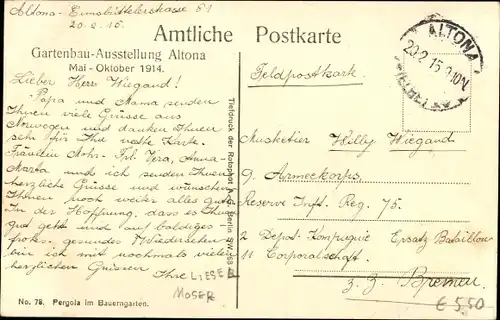 Altona - Eimsbüttelerstrasse 51
20.2.15
Amtliche Postkarte
Gartenbau-Ausstellung Altona
Mai - Oktober 1914.
Lieber Herr Wiegand!
Papa und Mama senden
Ihnen viele Grüsse aus
Norwegen und danken Ihnen
sehr für Ihre nette Karte.
Fräulein Mohr - Frl. Anna-
Marta und ich senden Ihnen
herzliche Grüsse und wünschen
Ihnen noch weiter alles gute.
In der Hoffnung, dass es Ihnen
gut geht und auf baldiges
frohes, gesundes Wiedersehen
bin ich mit nochmals vielen
herzlichen Grüssen
Ihre LIESEB
MOSER
No. 78. Pergola im Bauerngarten.
Tiefdruck der Rotophot A.-G. Berlin SW. 68
ALTONA
20.2.15. 9-10N.
Feldpostkarte.
Musketier Willy Wiegand
9. Armeekorps,
Reserve Inft. Reg. 75.
2 Depot-Kompagnie Ersatz Bataillon
11 Corporalschaft.
z. Z. Bremen.
€ 5.50